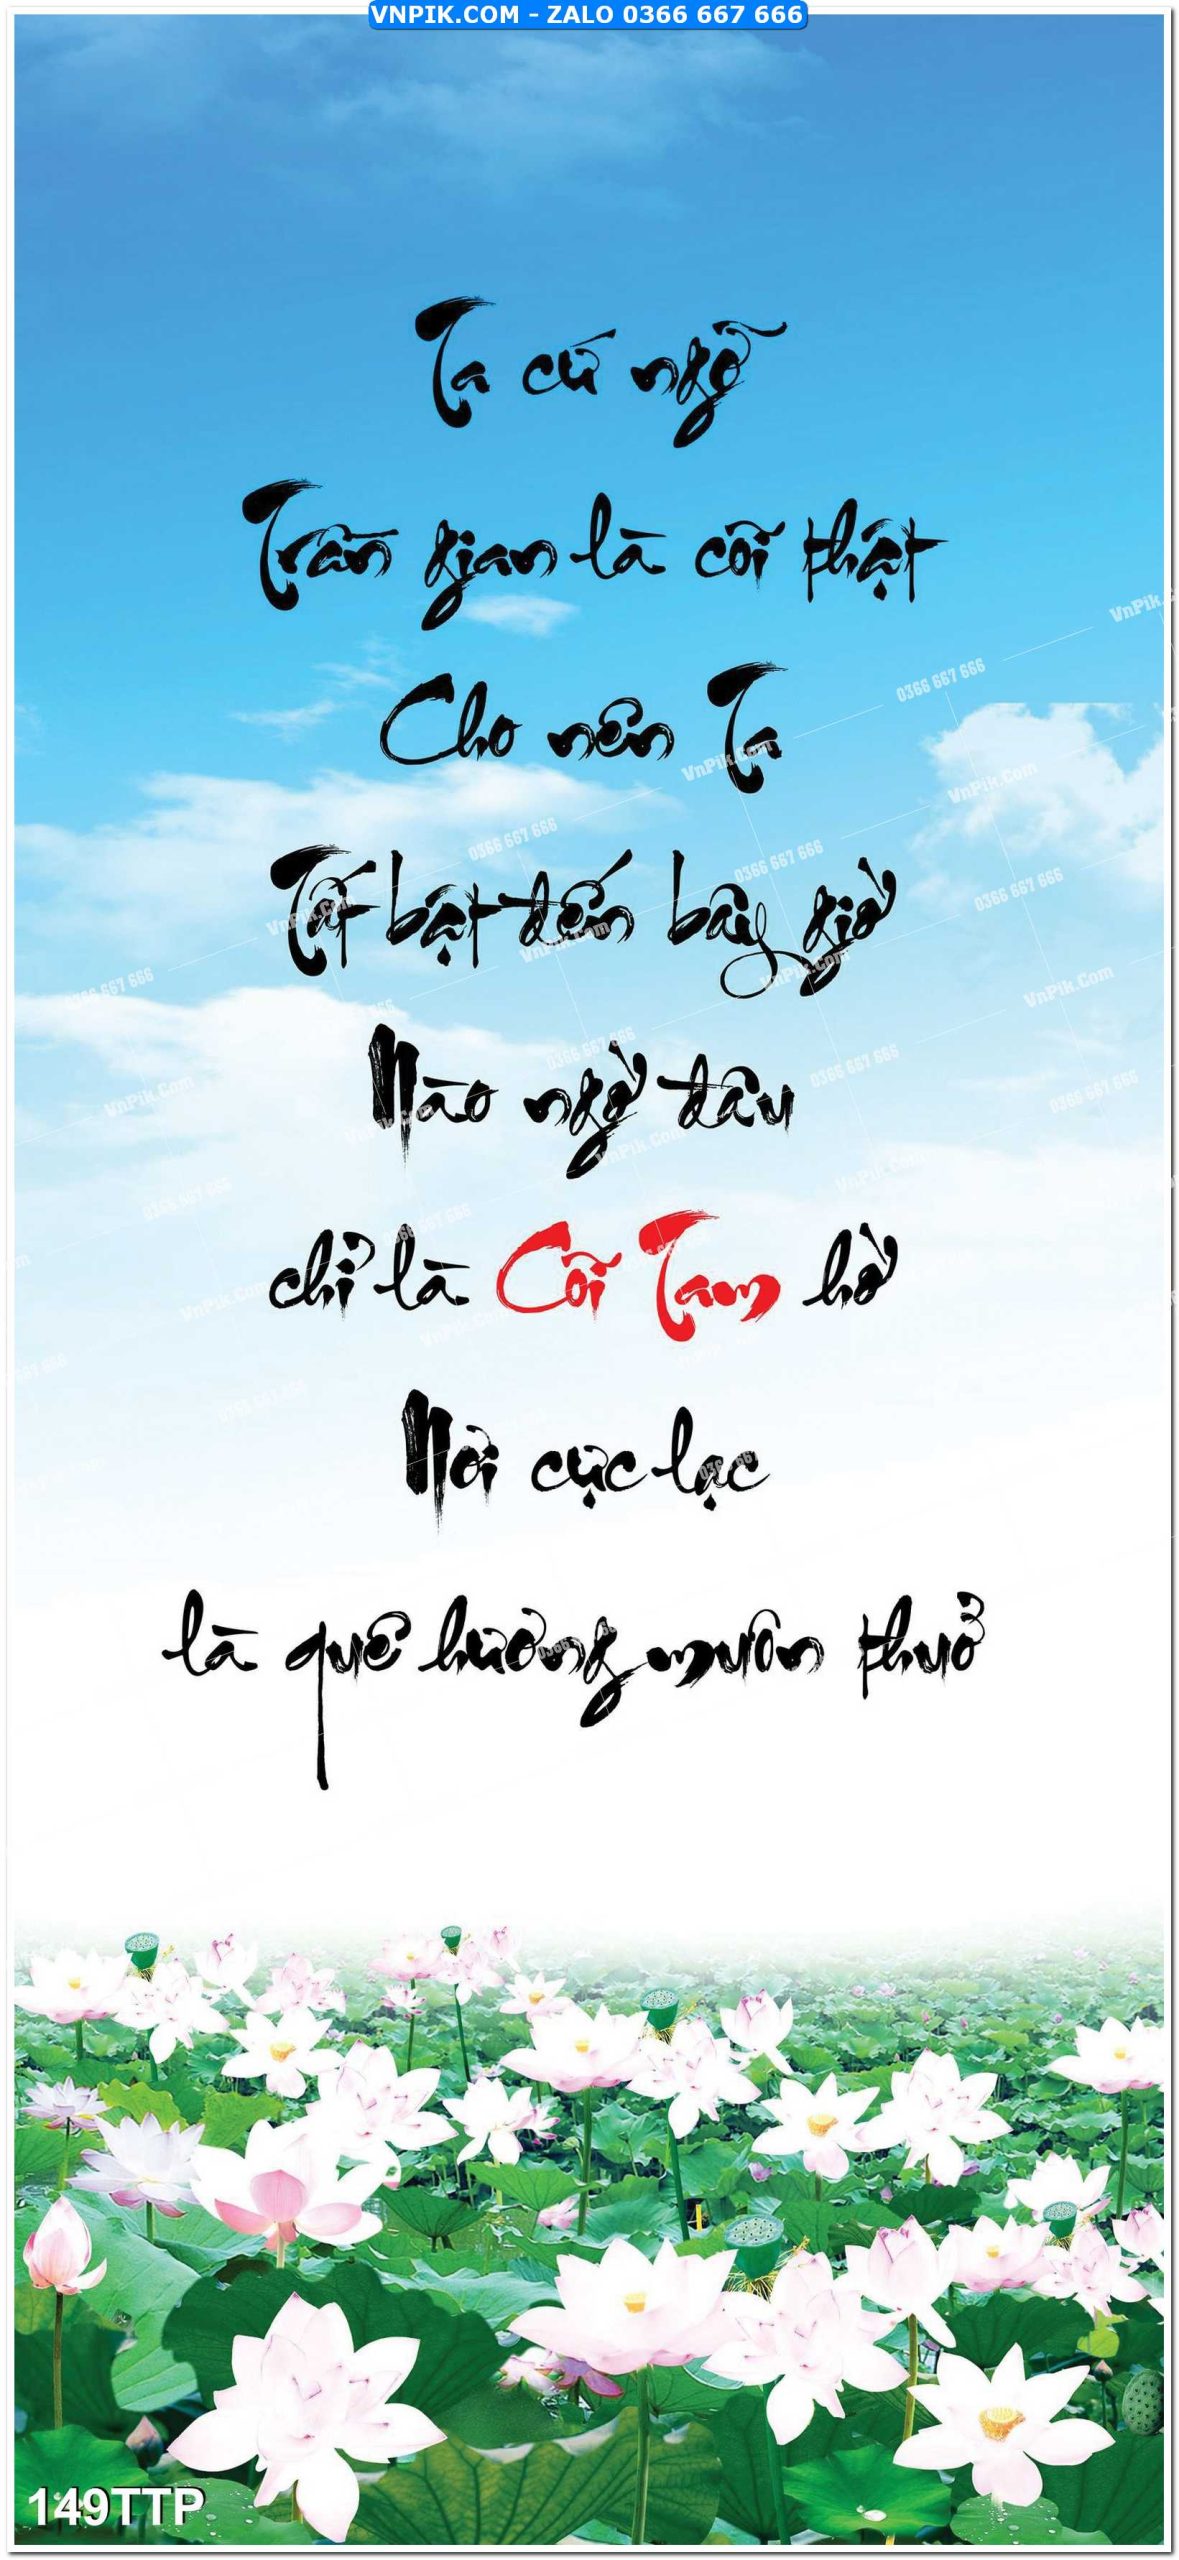 VNPIK.COM - ZALO 0366 667 666
Ta cứ ngỡ
Trần gian là cõi thật
Cho nên Ta
Tất bật đến bây giờ
Nào ngờ đâu
chỉ là Cõi Tạm hờ
Nơi cực lạc
là quê hương muôn thuở
149TTP
VnPik.Com
0366 667 666